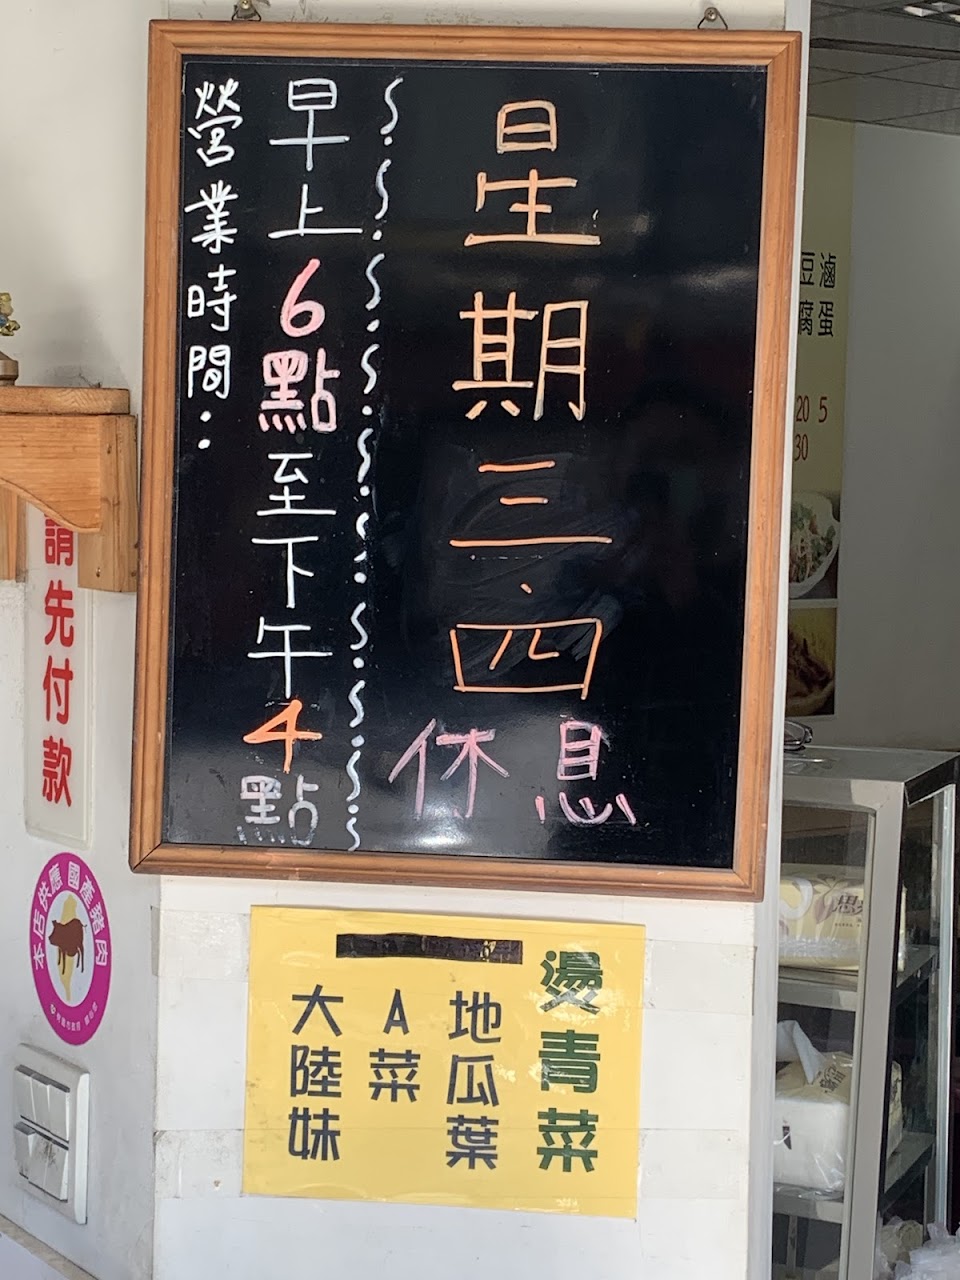 營業時間：
早上6點至下午4點
星期三.四
休息
豆腐
滷蛋
20
5
30
請先付款
本店供應國產豬肉
燙青菜
地瓜葉
A菜
大陸妹